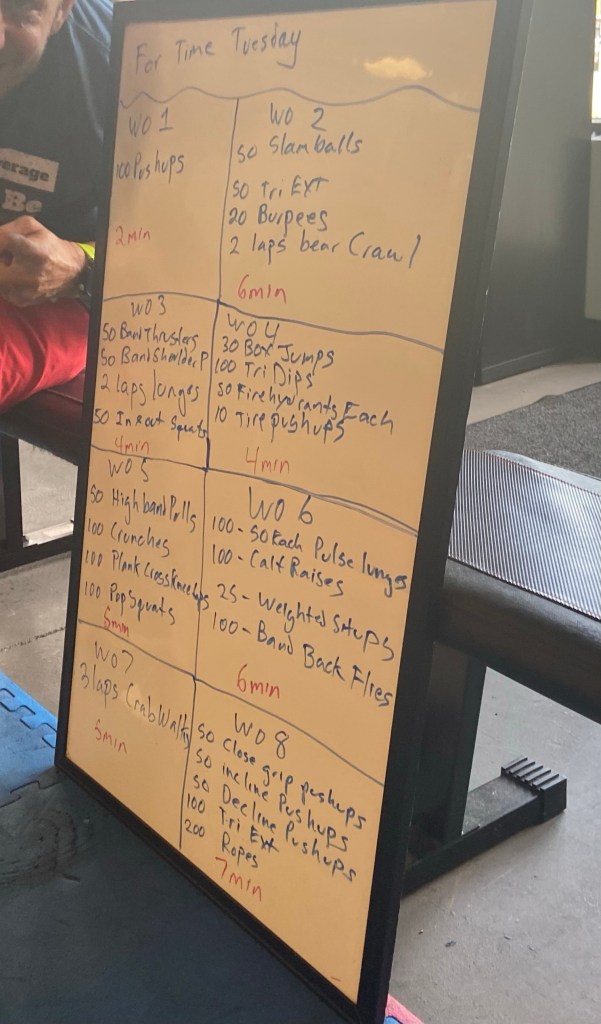 For Time Tuesday
WO 1
100 Pushups
2min
WO 2
50 Slamballs
50 Tri EXT
20 Burpees
2 laps bear Crawl
6min
WO 3
50 Band Thrusters
50 Band Shoulder P
2 laps lunges
50 In & out Squats
4min
WO 4
30 Box Jumps
100 Tri Dips
50 Firehydrants Each
10 Tire pushups
4min
WO 5
50 High band Pulls
100 Crunches
100 Plank Cross Knee ups
100 Pop Squats
5min
WO 6
100 - 50 Each Pulse lunges
100 - Calf Raises
25 - Weighted Situps
100 - Band Back Flies
6min
WO 7
3 laps Crab Walks
5min
WO 8
50 Close grip pushups
50 incline Pushups
50 Decline Pushups
100 Tri Ext
200 Ropes
7min
erage
Be